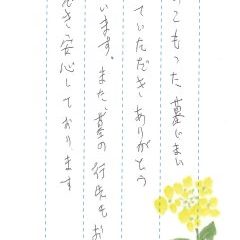 こもった墓じまい
ていただきありがとう
います。また、墓の行先もお
き安心しております